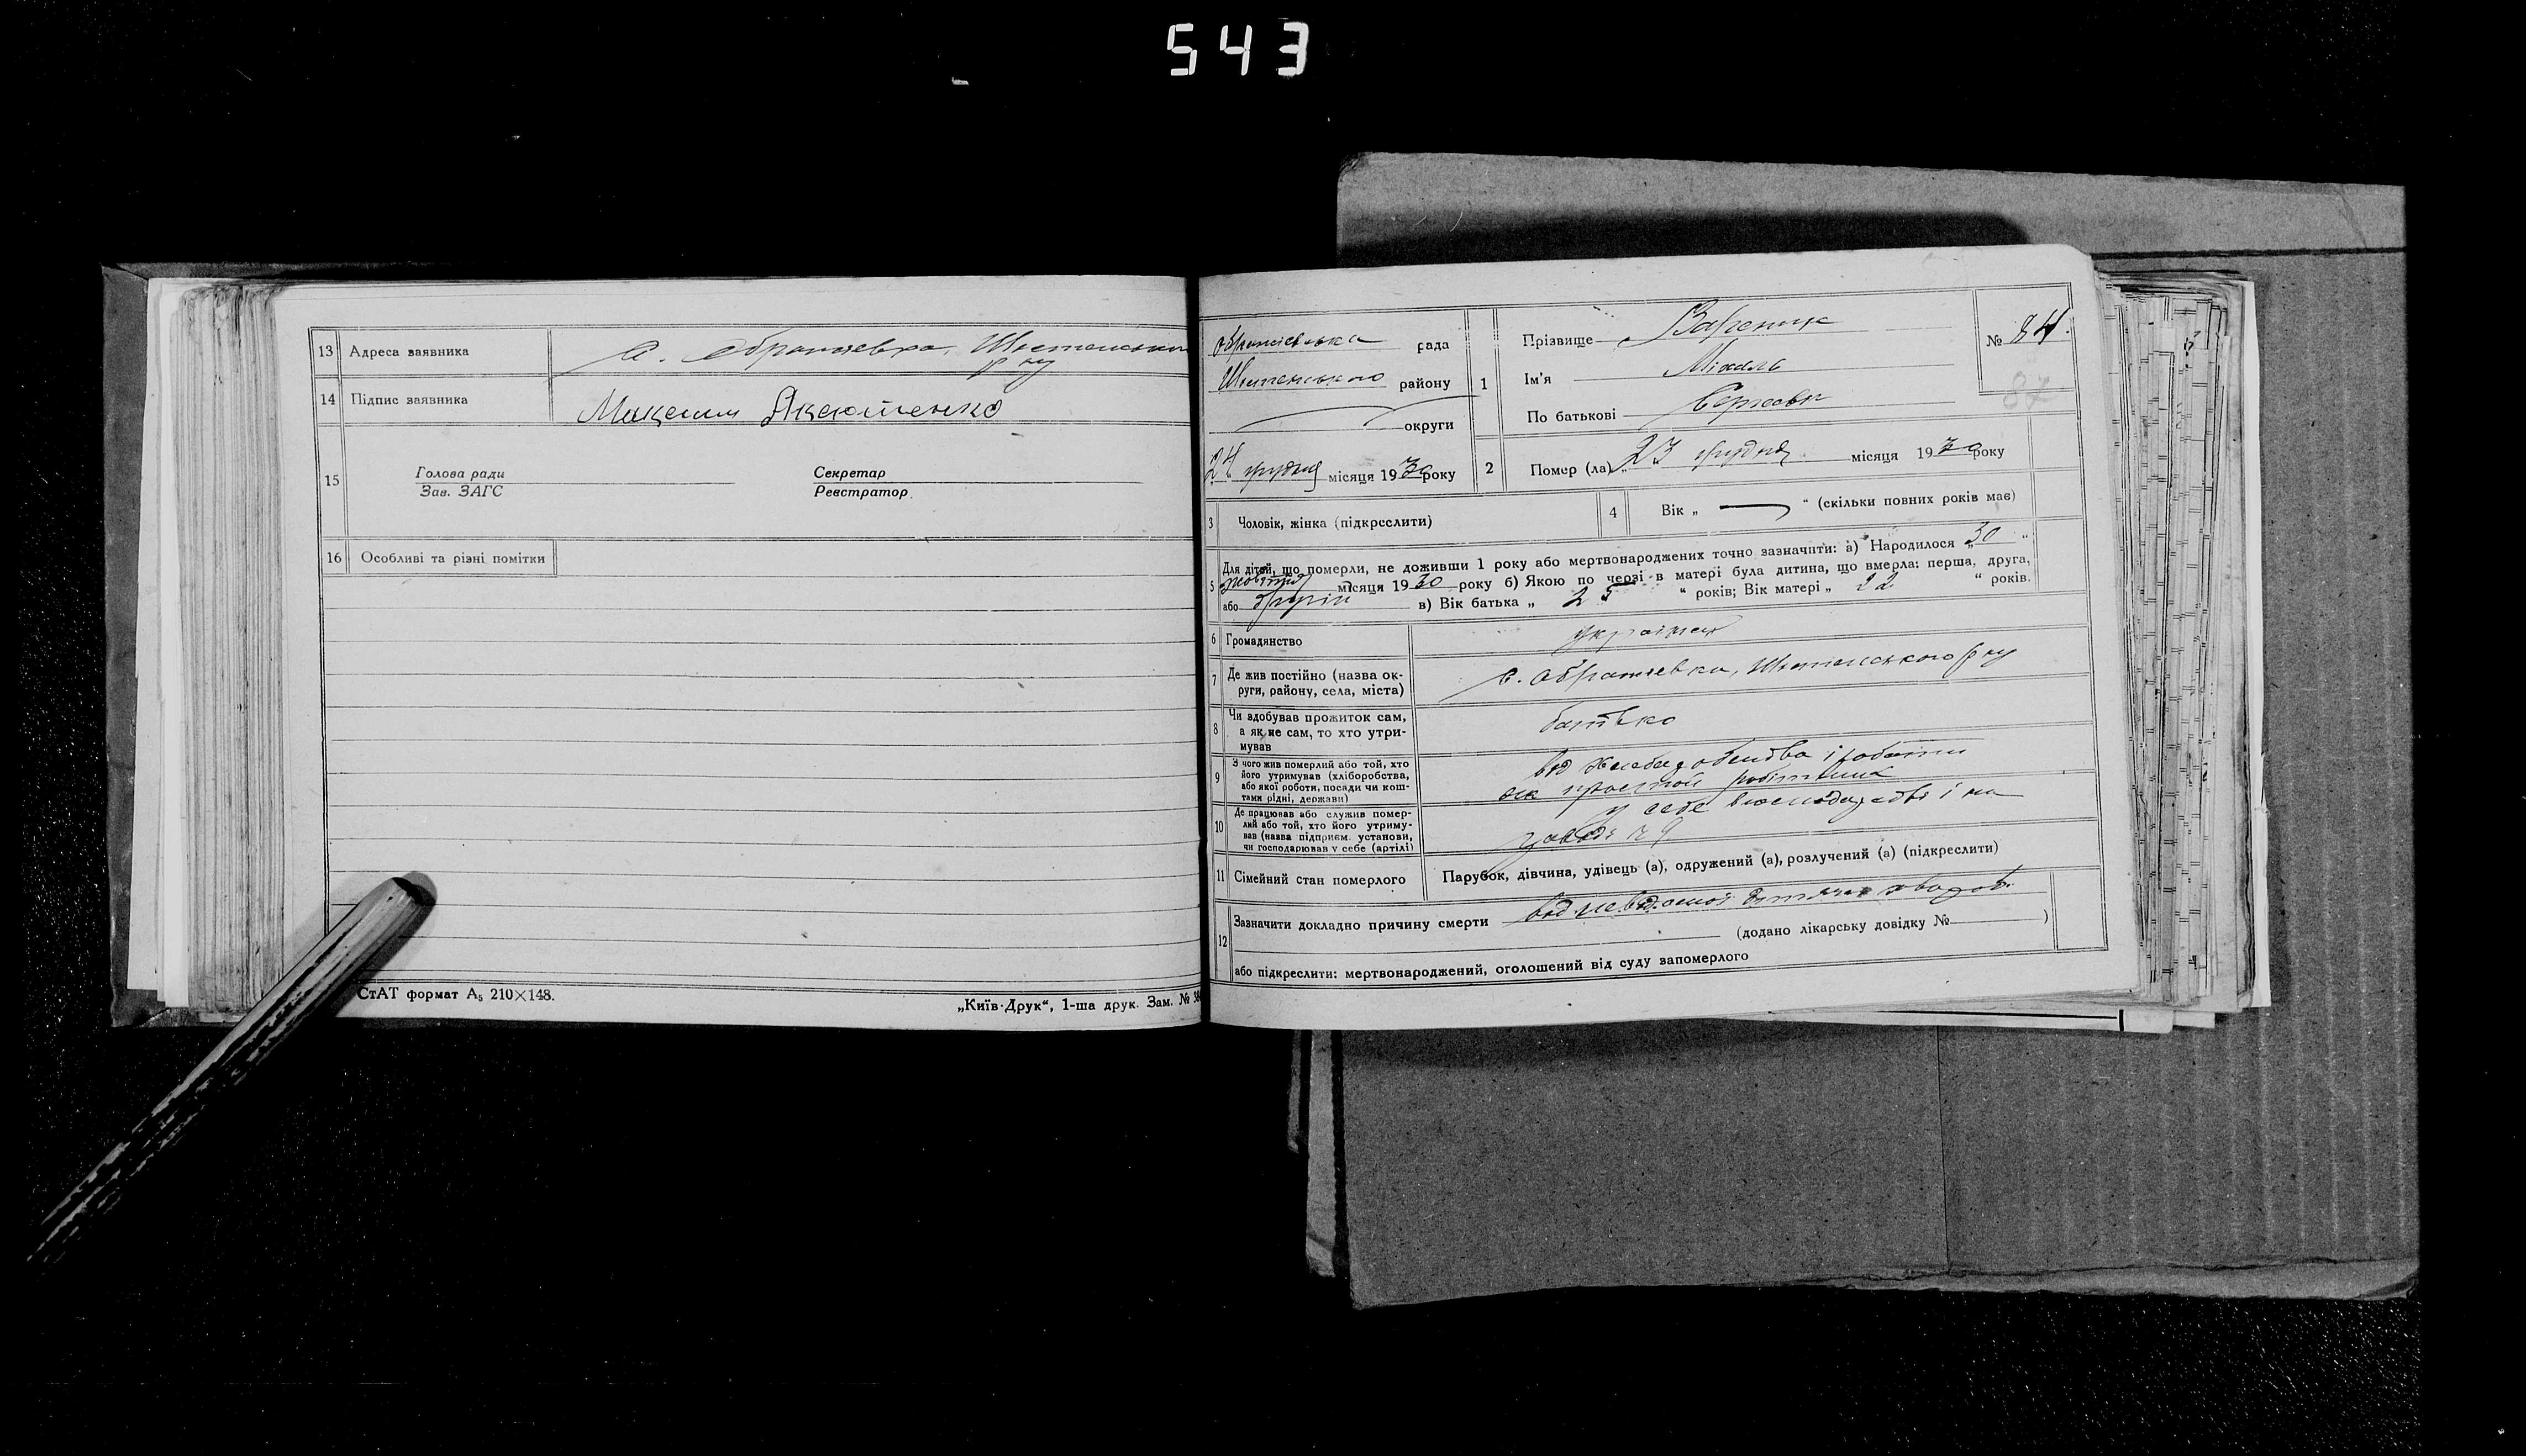 543
13 Адреса заявника
р ну
14 Підпис заявника Максим Яксютенко
15 Голова ради
Зав. ЗАГС
Секретар
Реєстратор.
16 Особливі та різні помітки
СтАТ формат А₅ 210×148.
„Київ-Друк“, 1-ша друк. Зам. №
рада
району
округи
24 грудня місяця 1930 року
1 Прізвище Вареник
Ім'я Міхаль
По батькові
№ 84.
87
2 Помер (ла) „23 грудня місяця 1930 року
3 Чоловік, жінка (підкреслити)
4 Вік „ — “ (скільки повних років має)
5 Для дітей, що померли, не доживши 1 року або мертвонароджених точно зазначити: а) Народилося „30“
жовтня місяця 1930 року б) Якою по черзі в матері була дитина, що вмерла: перша, друга,
або в) Вік батька „ 25 “ років; Вік матері „ 22 “ років.
6 Громадянство
7 Де жив постійно (назва ок-
руги, району, села, міста)
8 Чи здобував прожиток сам,
а як не сам, то хто утри-
мував
батько
9 З чого жив померлий або той, хто
його утримував (хліборобства,
або якої роботи, посади чи кош-
тами рідні, держави)
10 Де працював або служив помер-
лий або той, хто його утриму-
вав (назва підприєм. установи,
чи господарював у себе (артілі)
у себе в господарстві і на
11 Сімейний стан померлого Парубок, дівчина, удівець (а), одружений (а), розлучений (а) (підкреслити)
12 Зазначити докладно причину смерти від невідомої
(додано лікарську довідку № )
або підкреслити: мертвонароджений, оголошений від суду запомерлого